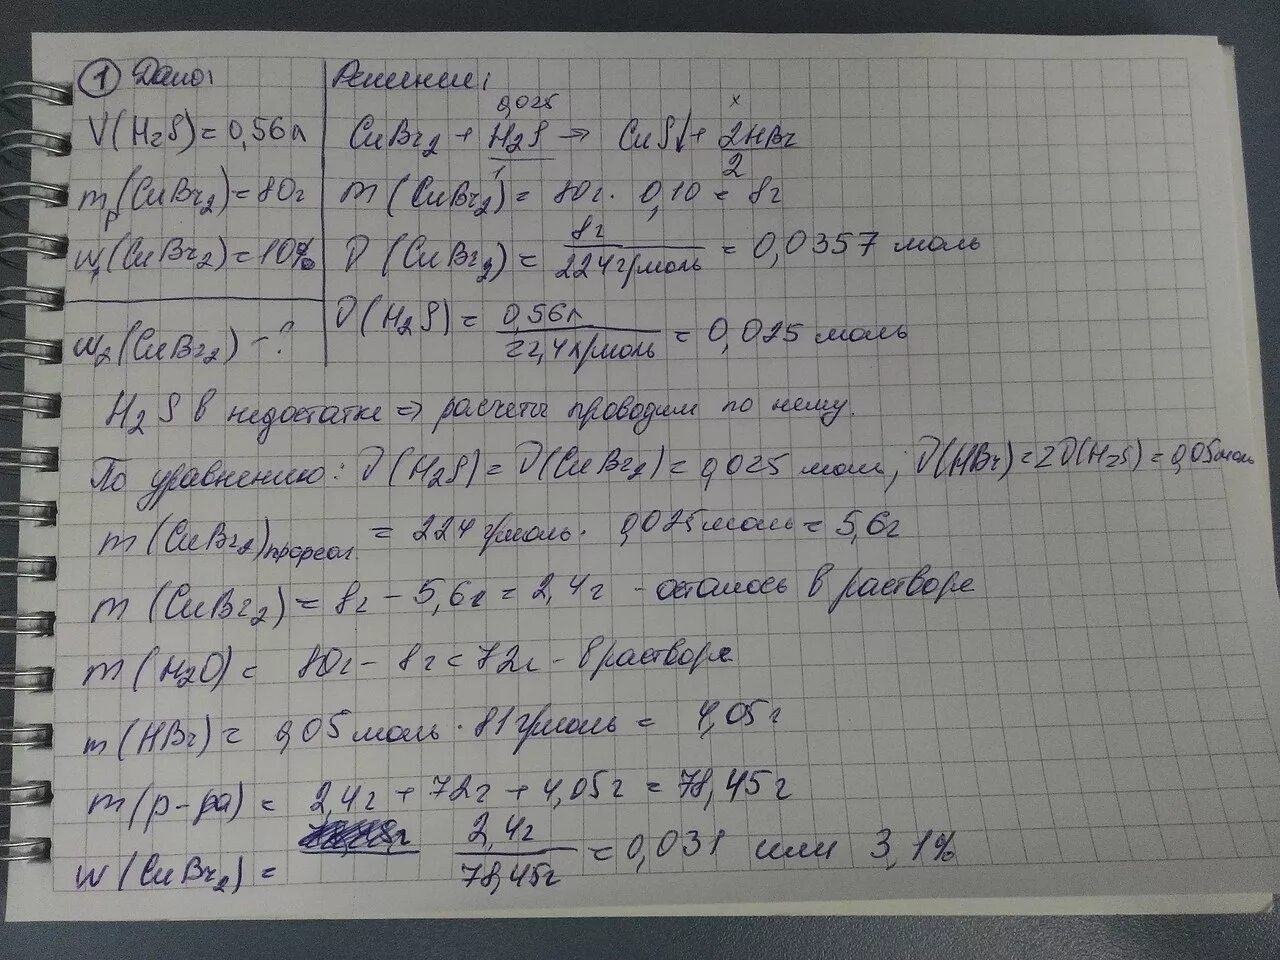 1 Дано:
V(H2S) = 0,56л
mр(CuBr2) = 80г
w1(CuBr2) = 10%
w2(CuBr2) - ?
Решение:
0,025 x
CuBr2 + H2S → CuS↓ + 2HBr
1 2
m(CuBr2) = 80г · 0,10 = 8г
ν(CuBr2) = 8г / 224г/моль = 0,0357 моль
ν(H2S) = 0,56л / 22,4л/моль = 0,025 моль
H2S в недостатке ⇒ расчеты проводим по нему.
По уравнению: ν(H2S) = ν(CuBr2) = 0,025 моль; ν(HBr) = 2ν(H2S) = 0,05моль
m(CuBr2)прореаг = 224 г/моль · 0,025моль = 5,6г
m(CuBr2) = 8г - 5,6г = 2,4г - осталось в растворе
m(H2O) = 80г - 8г = 72г - в растворе
m(HBr) = 0,05 моль · 81 г/моль = 4,05г
m(р-ра) = 2,4г + 72г + 4,05г = 78,45г
w(CuBr2) = 2,4г / 78,45г = 0,031 или 3,1%